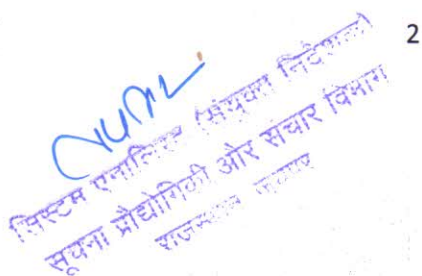 2
सिस्टम एनालिस्ट (संयुक्त निदेशक)
सूचना प्रौद्योगिकी और संचार विभाग
राजस्थान जयपुर